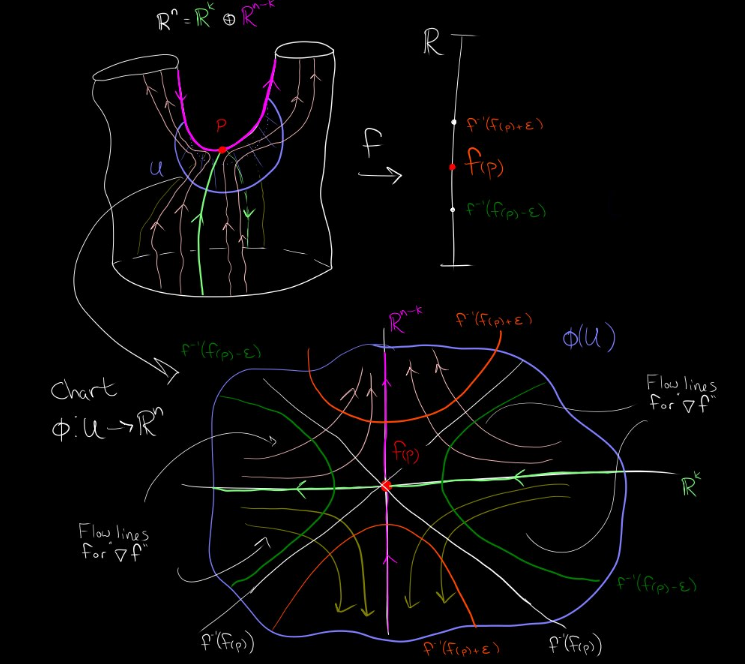 ℝⁿ = ℝᵏ ⊕ ℝⁿ⁻ᵏ
ℝ
P
f⁻¹(f(p)+ε)
U
f
f(p)
f⁻¹(f(p)-ε)
ℝⁿ⁻ᵏ
f⁻¹(f(p)+ε)
ϕ(U)
f⁻¹(f(p)-ε)
Chart
ϕ:U→ℝⁿ
Flow lines
for "∇f"
f(p)
ℝᵏ
Flow lines
for "∇f"
f⁻¹(f(p)-ε)
f⁻¹(f(p))
f⁻¹(f(p)+ε)
f⁻¹(f(p))